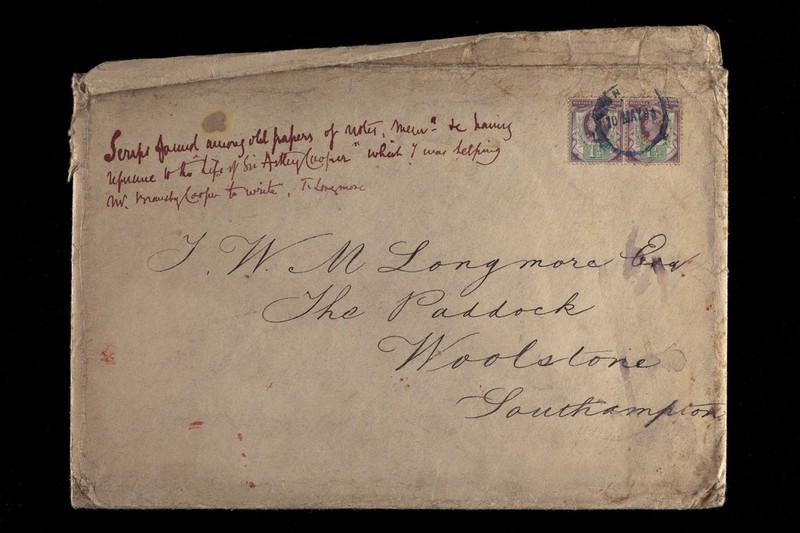 Scraps found among old papers of notes, mem.ª &c having
reference to the "Life of Sir Astley Cooper" which I was helping
Mr. Bransby Cooper to write. T. Longmore
10 MAY 9
J. W. M Longmore Esq
The Paddock
Woolstone
Southampton